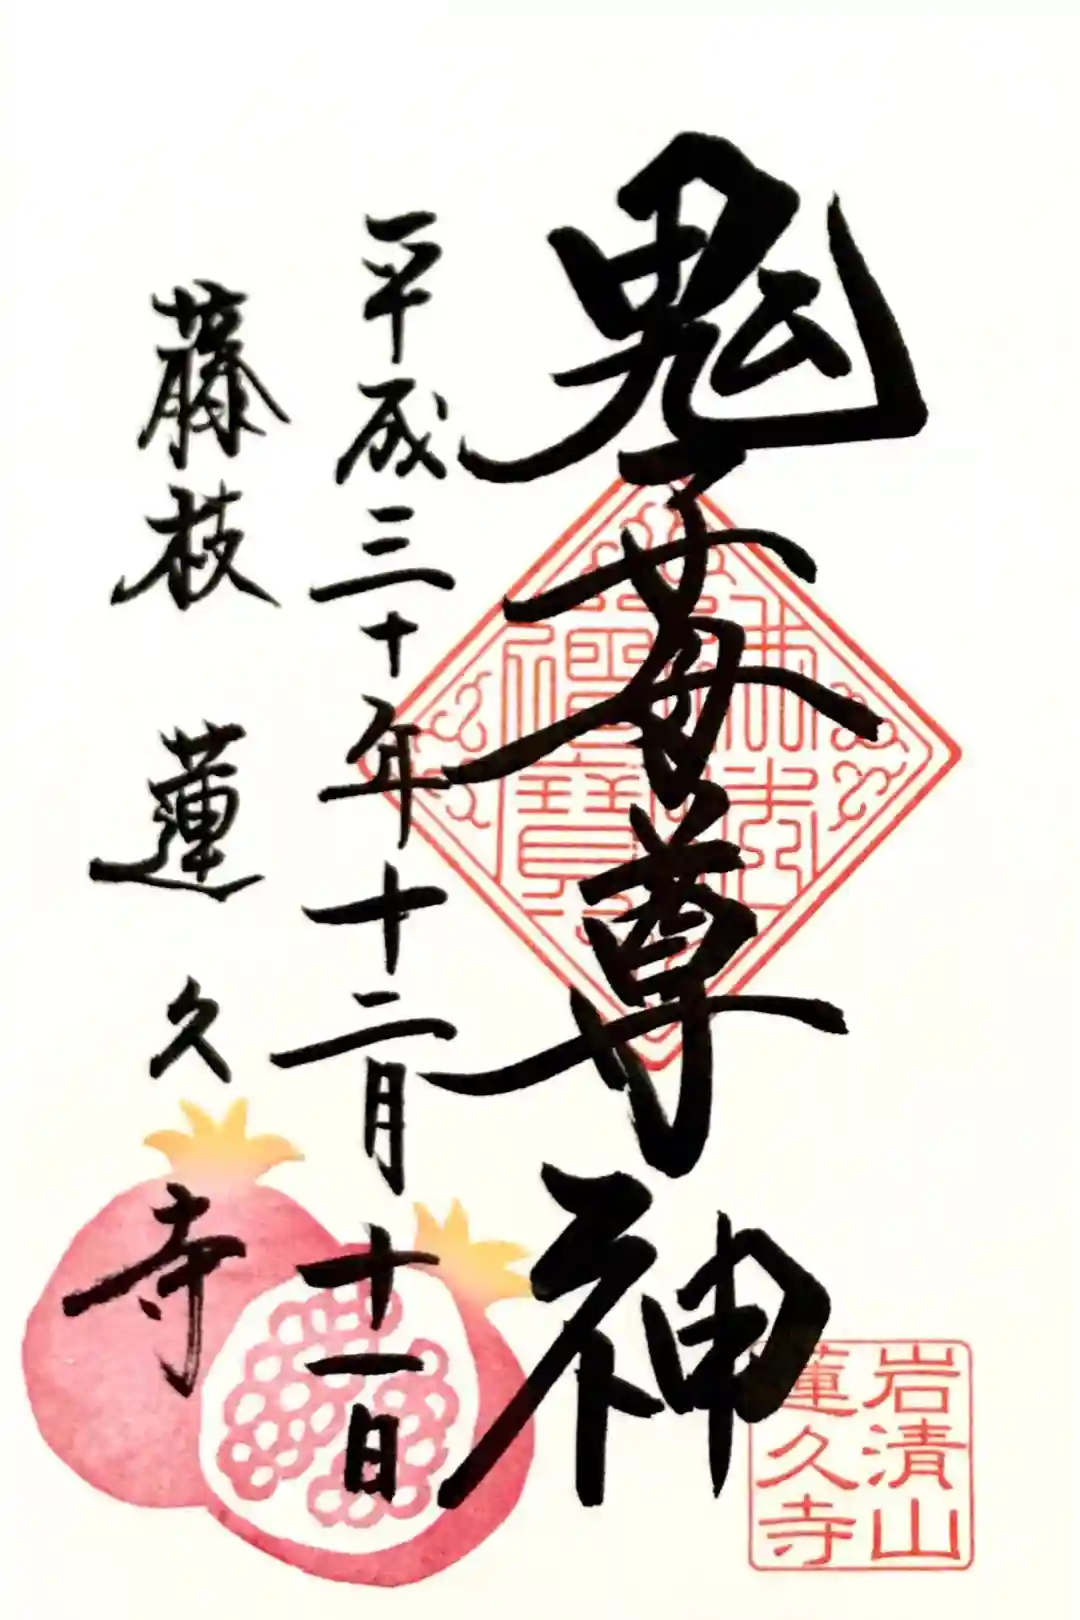 鬼子母尊神
平成三十年十二月十一日
藤枝 蓮久寺
佛法僧寶
岩清山
蓮久寺